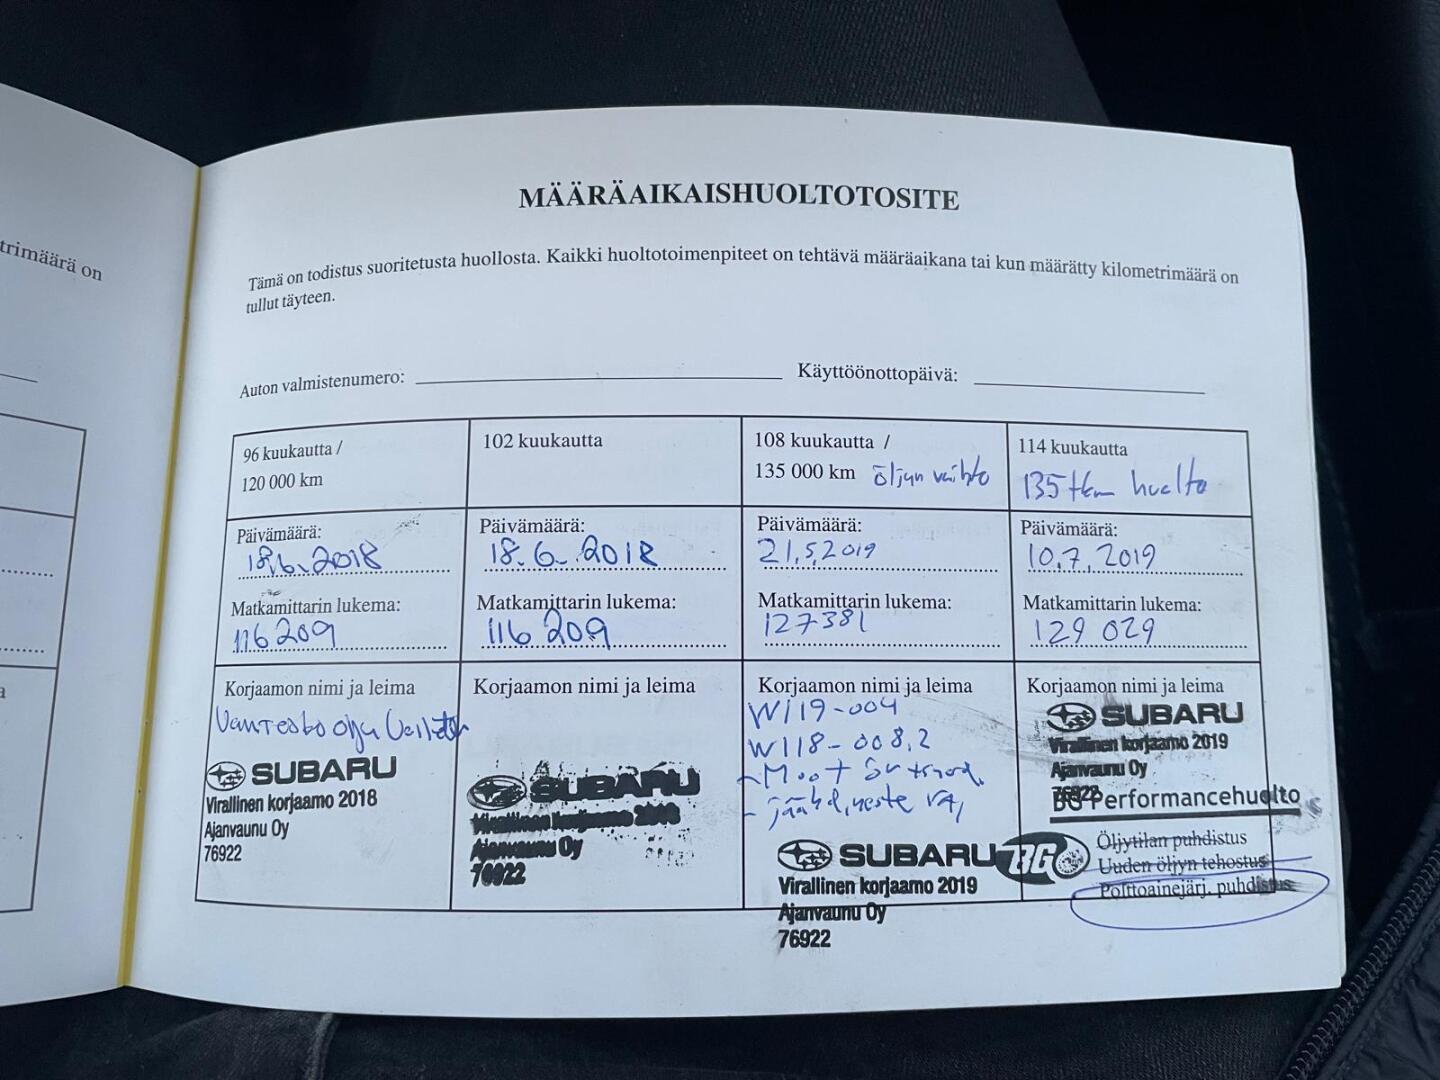 trimäärä on
MÄÄRÄAIKAISHUOLTOTOSITE
Tämä on todistus suoritetusta huollosta. Kaikki huoltotoimenpiteet on tehtävä määräaikana tai kun määrätty kilometrimäärä on
tullut täyteen.
Auton valmistenumero:
Käyttöönottopäivä:
96 kuukautta /
120 000 km
Päivämäärä:
18.6.2018
Matkamittarin lukema:
116 209
Korjaamon nimi ja leima
SUBARU
Virallinen korjaamo 2018
Ajanvaunu Oy
76922
102 kuukautta
Päivämäärä:
18.6.2018
Matkamittarin lukema:
116 209
Korjaamon nimi ja leima
SUBARU
Virallinen korjaamo 2018
Ajanvaunu Oy
76922
108 kuukautta /
135 000 km öljyn vaihto
Päivämäärä:
21.5.2019
Matkamittarin lukema:
127381
Korjaamon nimi ja leima
W119-004
W118-008.2
SUBARU
Virallinen korjaamo 2019
Ajanvaunu Oy
76922
114 kuukautta
135 tkm huolto
Päivämäärä:
10.7.2019
Matkamittarin lukema:
129 029
Korjaamon nimi ja leima
SUBARU
Virallinen korjaamo 2019
Ajanvaunu Oy
76922
BG Performancehuolto
BG
Öljytilan puhdistus
Uuden öljyn tehostus
Polttoainejärj. puhdistus